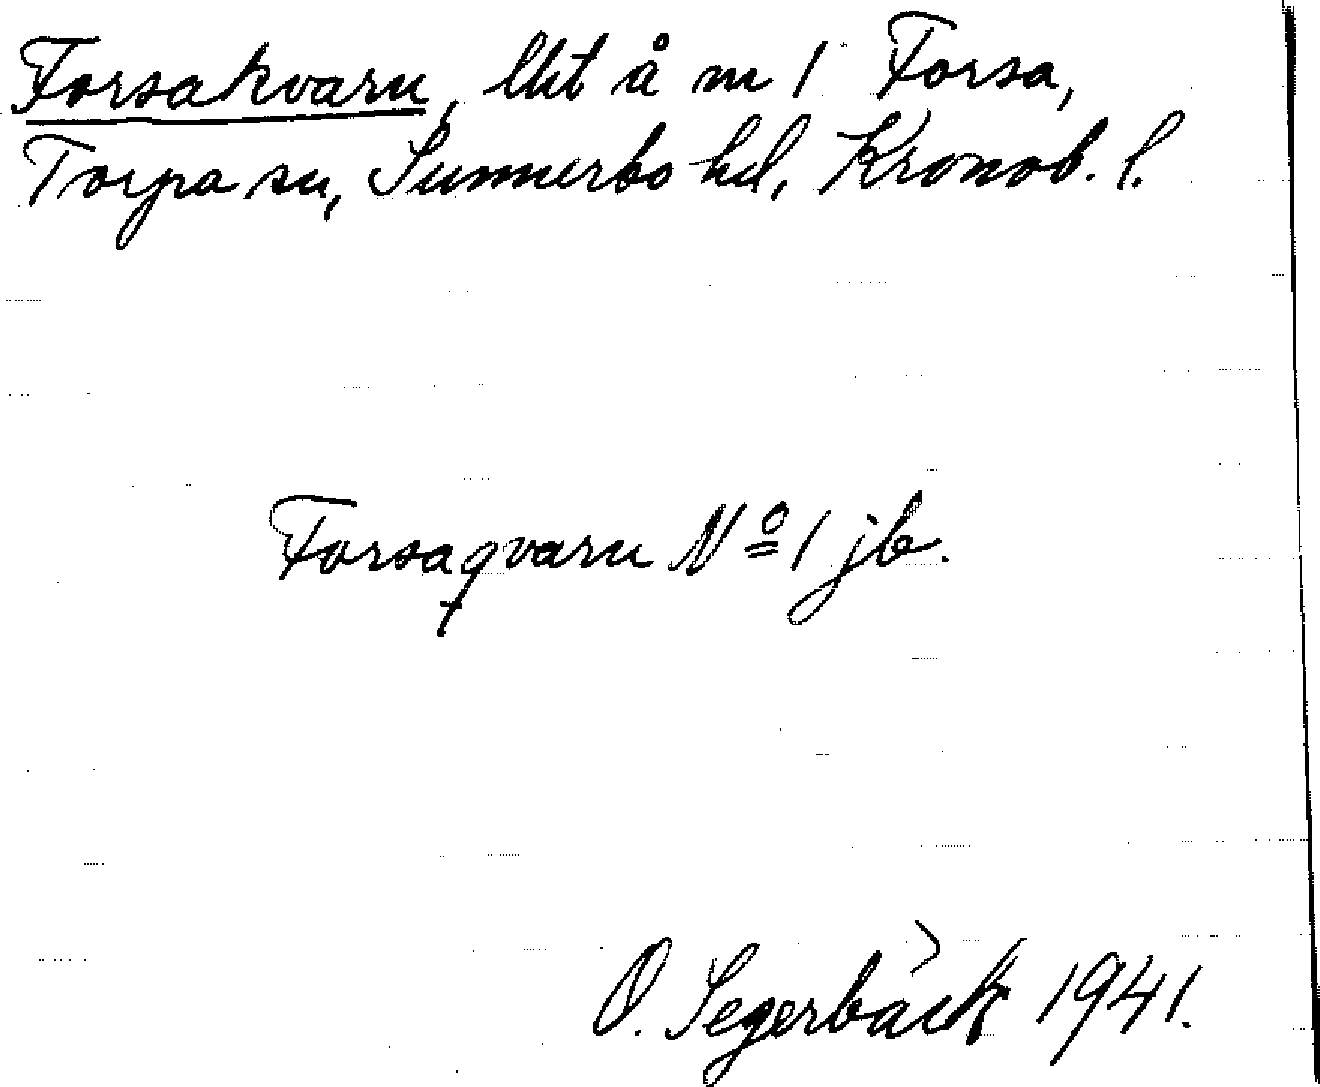 Forsakvarn, lht å m 1 Forsa,
Torpa sn, Sunnerbo hd, Kronob. l.
Forsaqvarn Nº 1 jb.
O. Segerbäck 1941.